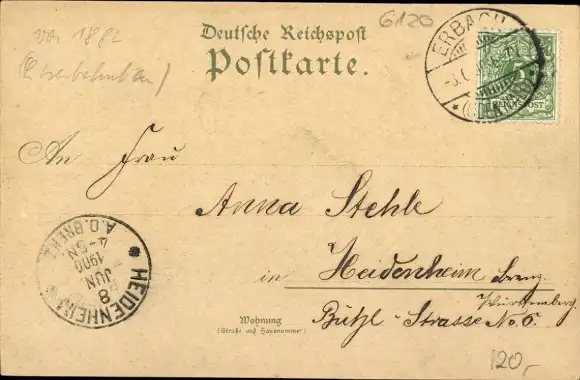 6120
Deutsche Reichspost
Postkarte.
vor 1882
ERBACH
(ODENWALD)
REICHSPOST
An Frau
Anna Stehle
in Heidenheim Brenz.
Württemberg.
Wohnung
(Straße und Hausnummer)
Strasse No. 6.
HEIDENHEIM
A.D. BRENZ.
8
JUN
1900
4-5N
120,-